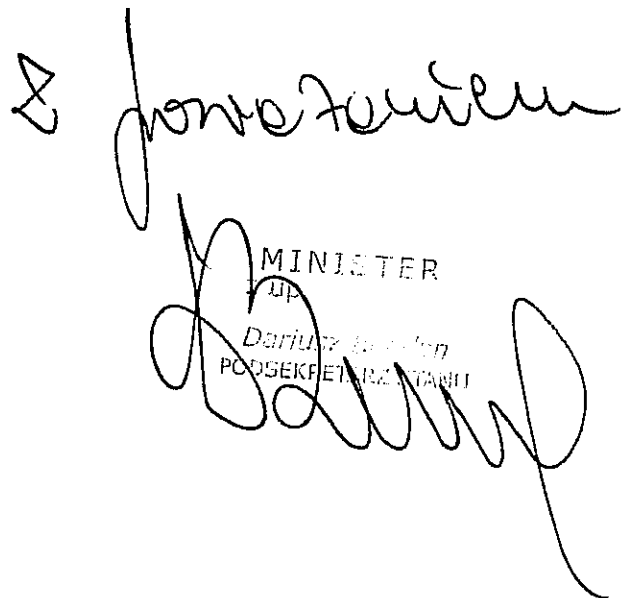 Z poważaniem
MINISTER
z up.
Dariusz
PODSEKRETARZ STANU